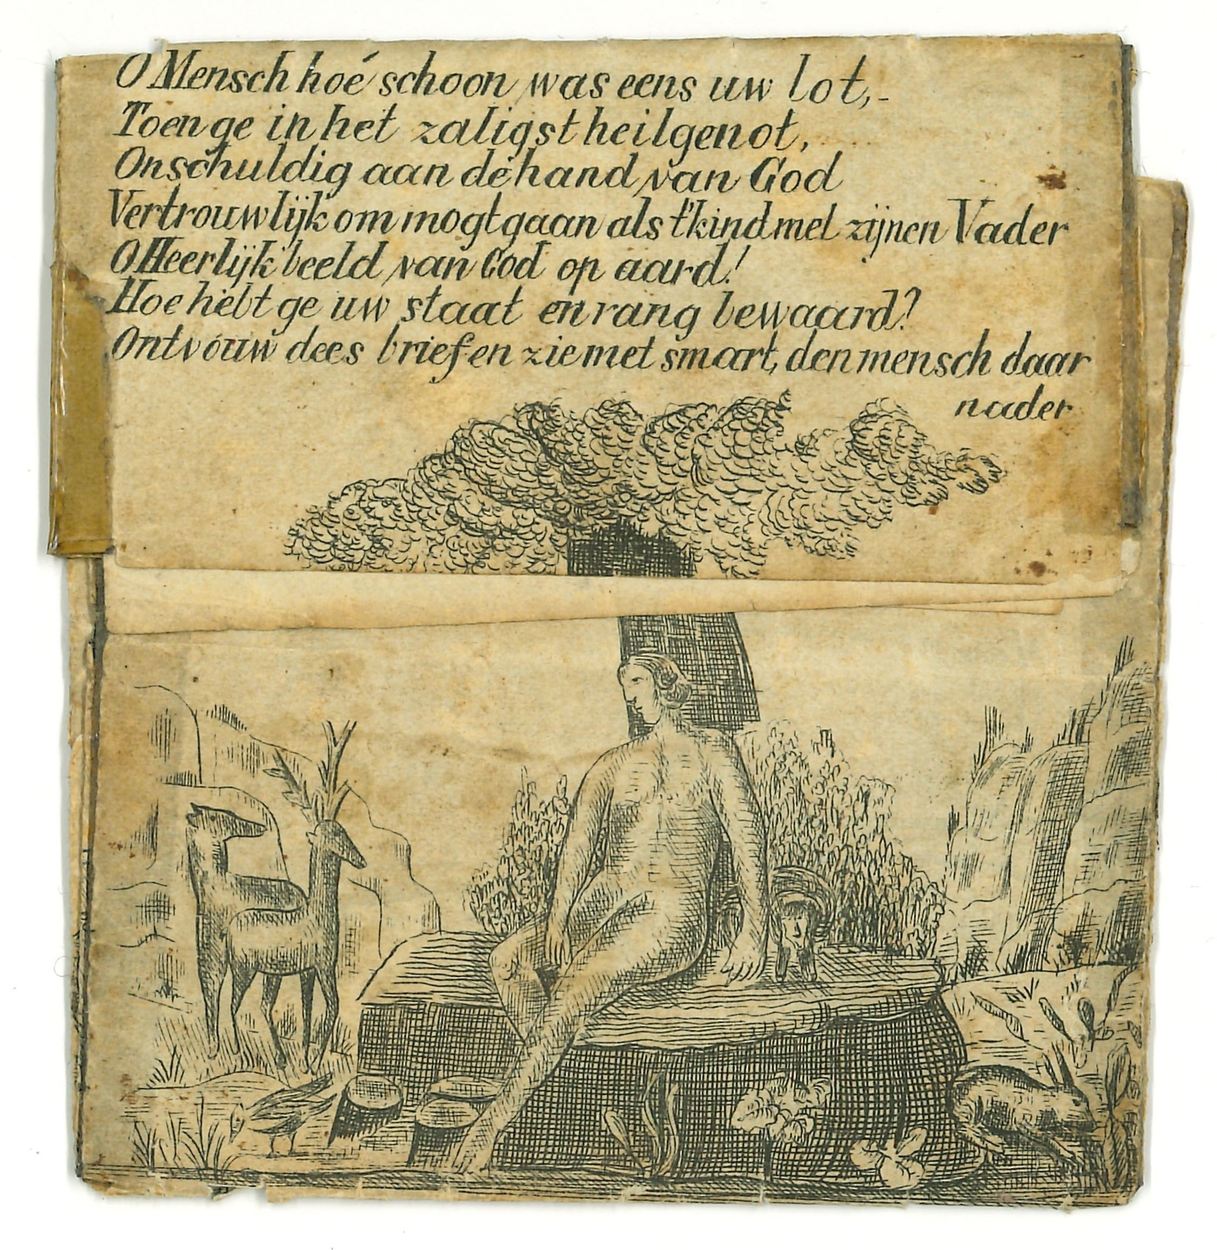 O Mensch hoé schoon was eens uw lot,-
Toen ge in het zaligst heilgenot,
Onschuldig aan de hand van God
Vertrouwlijk om mogt gaan als t'kind met zijnen Vader
O Heerlijk beeld van God op aard!
Hoe hebt ge uw staat en rang bewaard?
Ontvouw dees brief en zie met smart, den mensch daar
nader